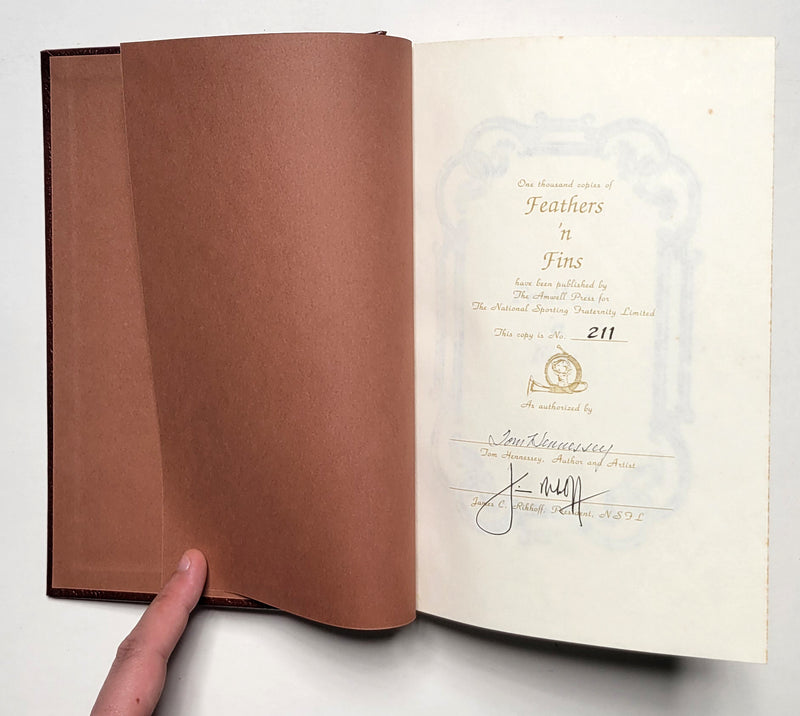 One thousand copies of
Feathers
'n
Fins
have been published by
The Amwell Press for
The National Sporting Fraternity Limited
This copy is No. 211
As authorized by
Tom Hennessey
Tom Hennessey, Author and Artist
James C. Rikhoff, President, NSFL